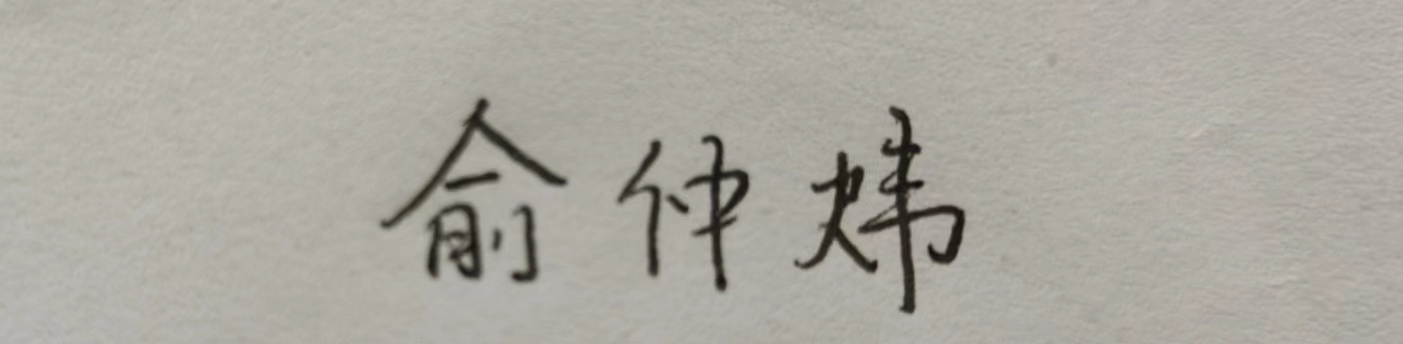 俞仲炜